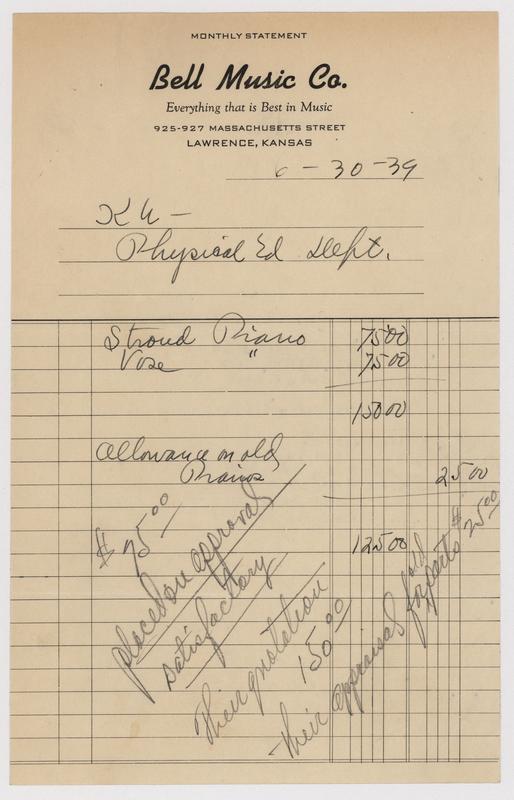 MONTHLY STATEMENT
Bell Music Co.
Everything that is Best in Music
925-927 MASSACHUSETTS STREET
LAWRENCE, KANSAS
6-30-39
KU-
Physical Ed Dept.
Stroud Piano 7500
Vose " 7500
15000
Allowance on old
Pianos 2500
12500
$75.00
placed on approval
satisfactory
Their quotation
150.00
Their appraisal of old
for parts $25.00